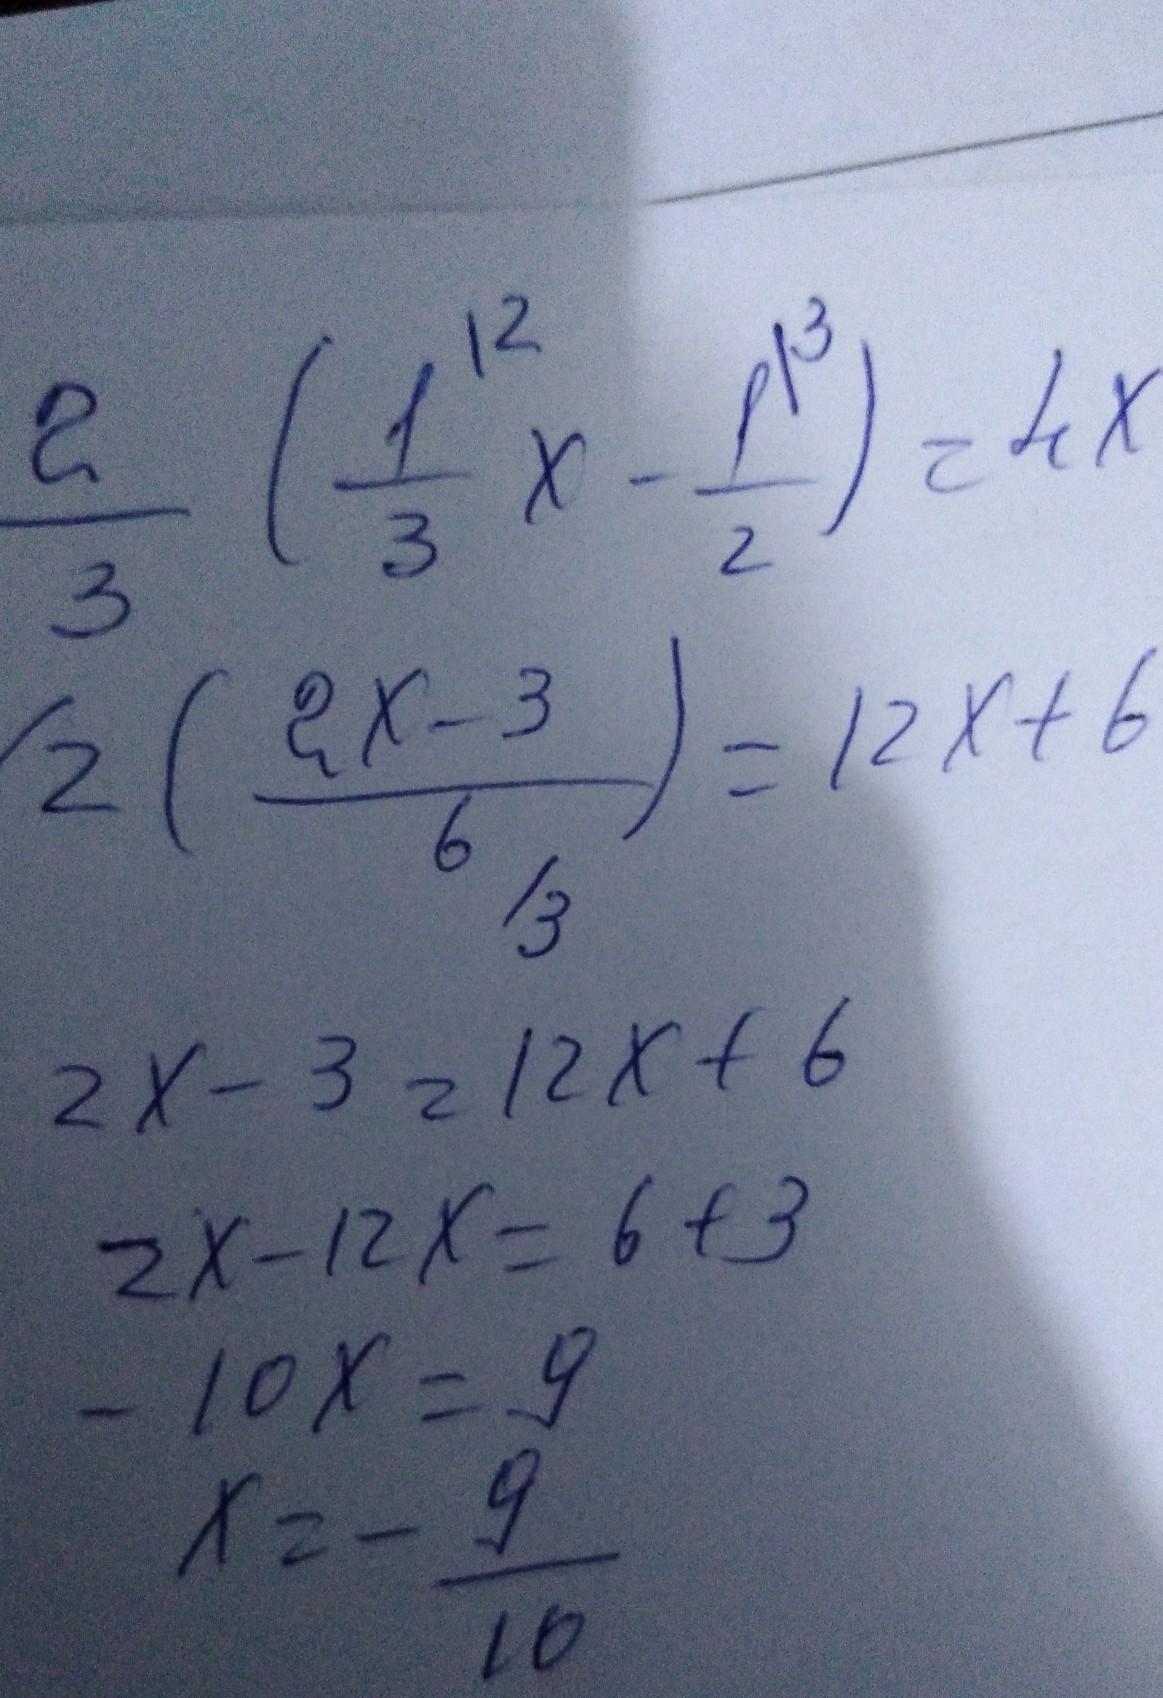 2/3 (1/3|² x - 1/2|³) = 4x
/2 ( (2x - 3)/6 ) = 12x + 6
/3
2x - 3 = 12x + 6
2x - 12x = 6 + 3
- 10x = 9
x = - 9/10